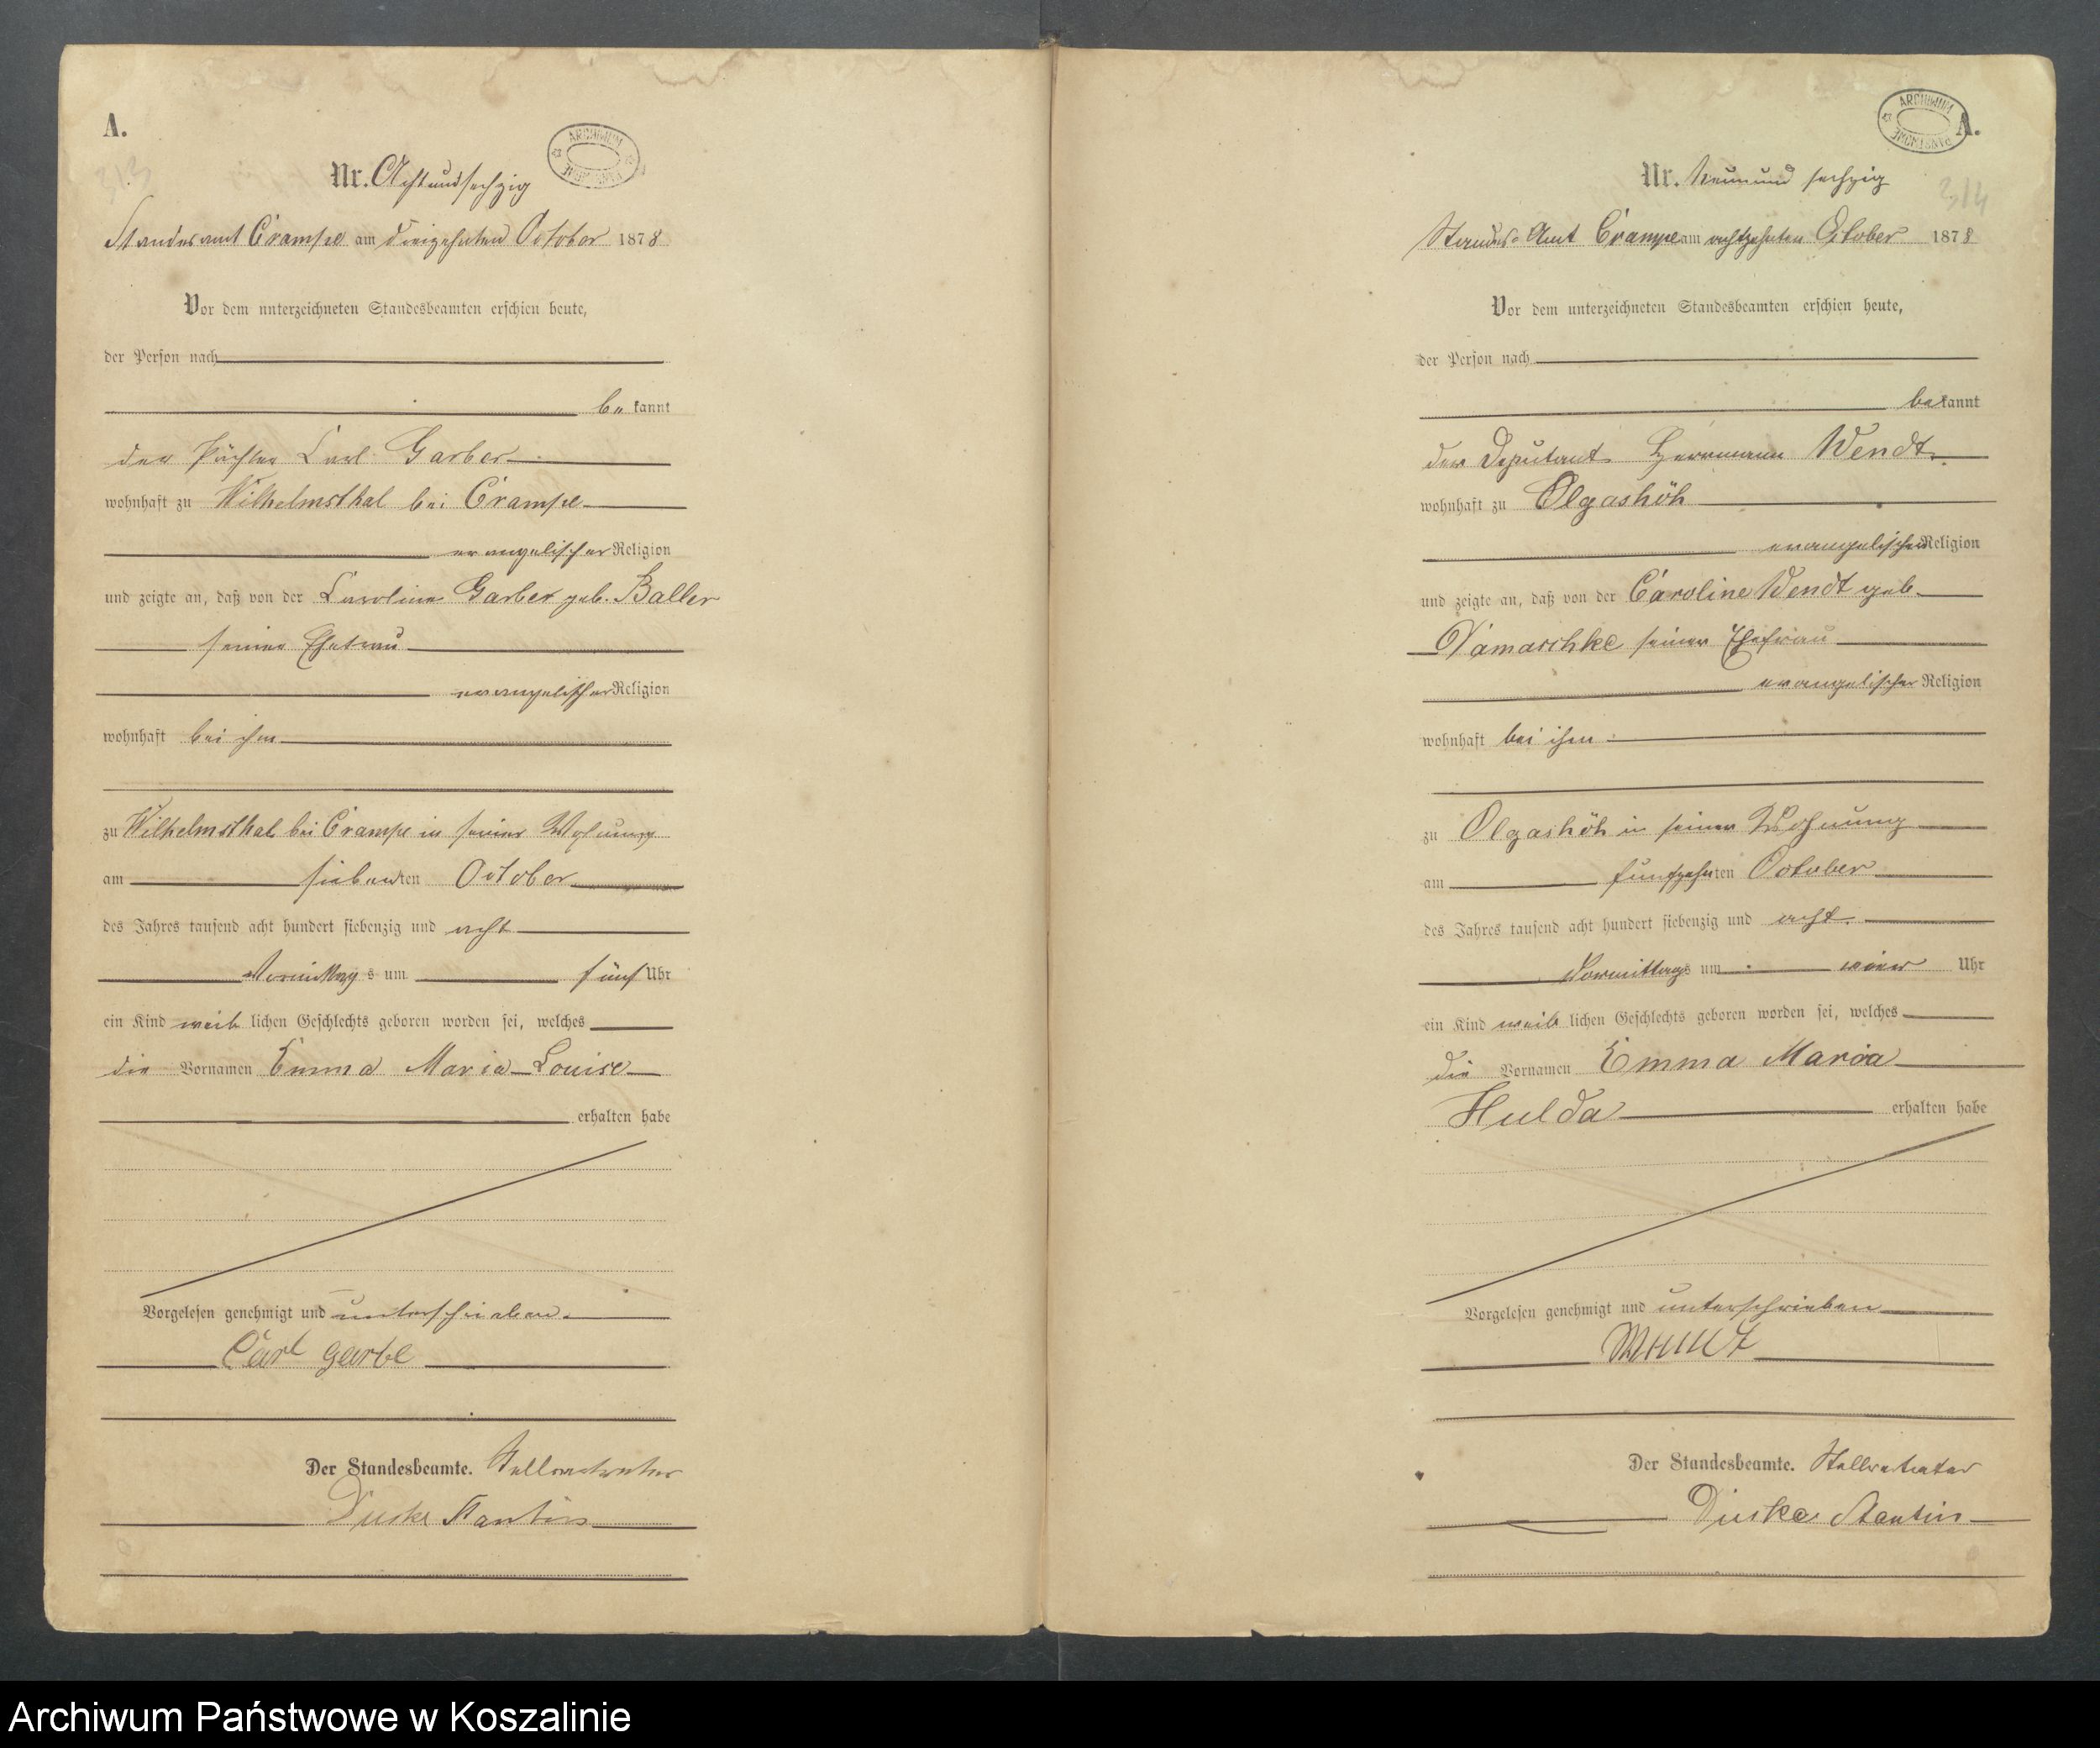 A.
ARCHIWUM PAŃSTWOWE
313
Nr. Achtundsechzig
Standesamt Crampe am dreizehnten October 1878
Vor dem unterzeichneten Standesbeamten erschien heute,
der Person nach
be kannt
der Pächter Carl Garber
wohnhaft zu Wilhelmsthal bei Crampe
evangelischer Religion
und zeigte an, daß von der Caroline Garber geb. Baller
seiner Ehefrau
evangelischer Religion
wohnhaft bei ihm
zu Wilhelmsthal bei Crampe in seiner Wohnung
am siebenten October
des Jahres tausend acht hundert siebenzig und acht
Vormittag s um fünf Uhr
ein Kind weib lichen Geschlechts geboren worden sei, welches
die Vornamen Emma Maria Louise
erhalten habe
Vorgelesen genehmigt und unterschrieben.
Carl Garbe
Der Standesbeamte. Stellvertreter
ARCHIWUM PAŃSTWOWE
A.
Nr. Neunund sechzig
314
Standes-Amt Crampe am achtzehnten October 1878
Vor dem unterzeichneten Standesbeamten erschien heute,
der Person nach
bekannt
der Deputant Herrmann Wendt
wohnhaft zu Olgashöh
evangelischer Religion
und zeigte an, daß von der Caroline Wendt geb.
Damaschke seiner Ehefrau
evangelischer Religion
wohnhaft bei ihm
zu Olgashöh in seiner Wohnung
am fünfzehnten October
des Jahres tausend acht hundert siebenzig und acht.
Vormittags um vier Uhr
ein Kind weib lichen Geschlechts geboren worden sei, welches
die Vornamen Emma Maria
Hulda erhalten habe
Vorgelesen genehmigt und unterschrieben
Der Standesbeamte. Stellvertreter
Archiwum Państwowe w Koszalinie